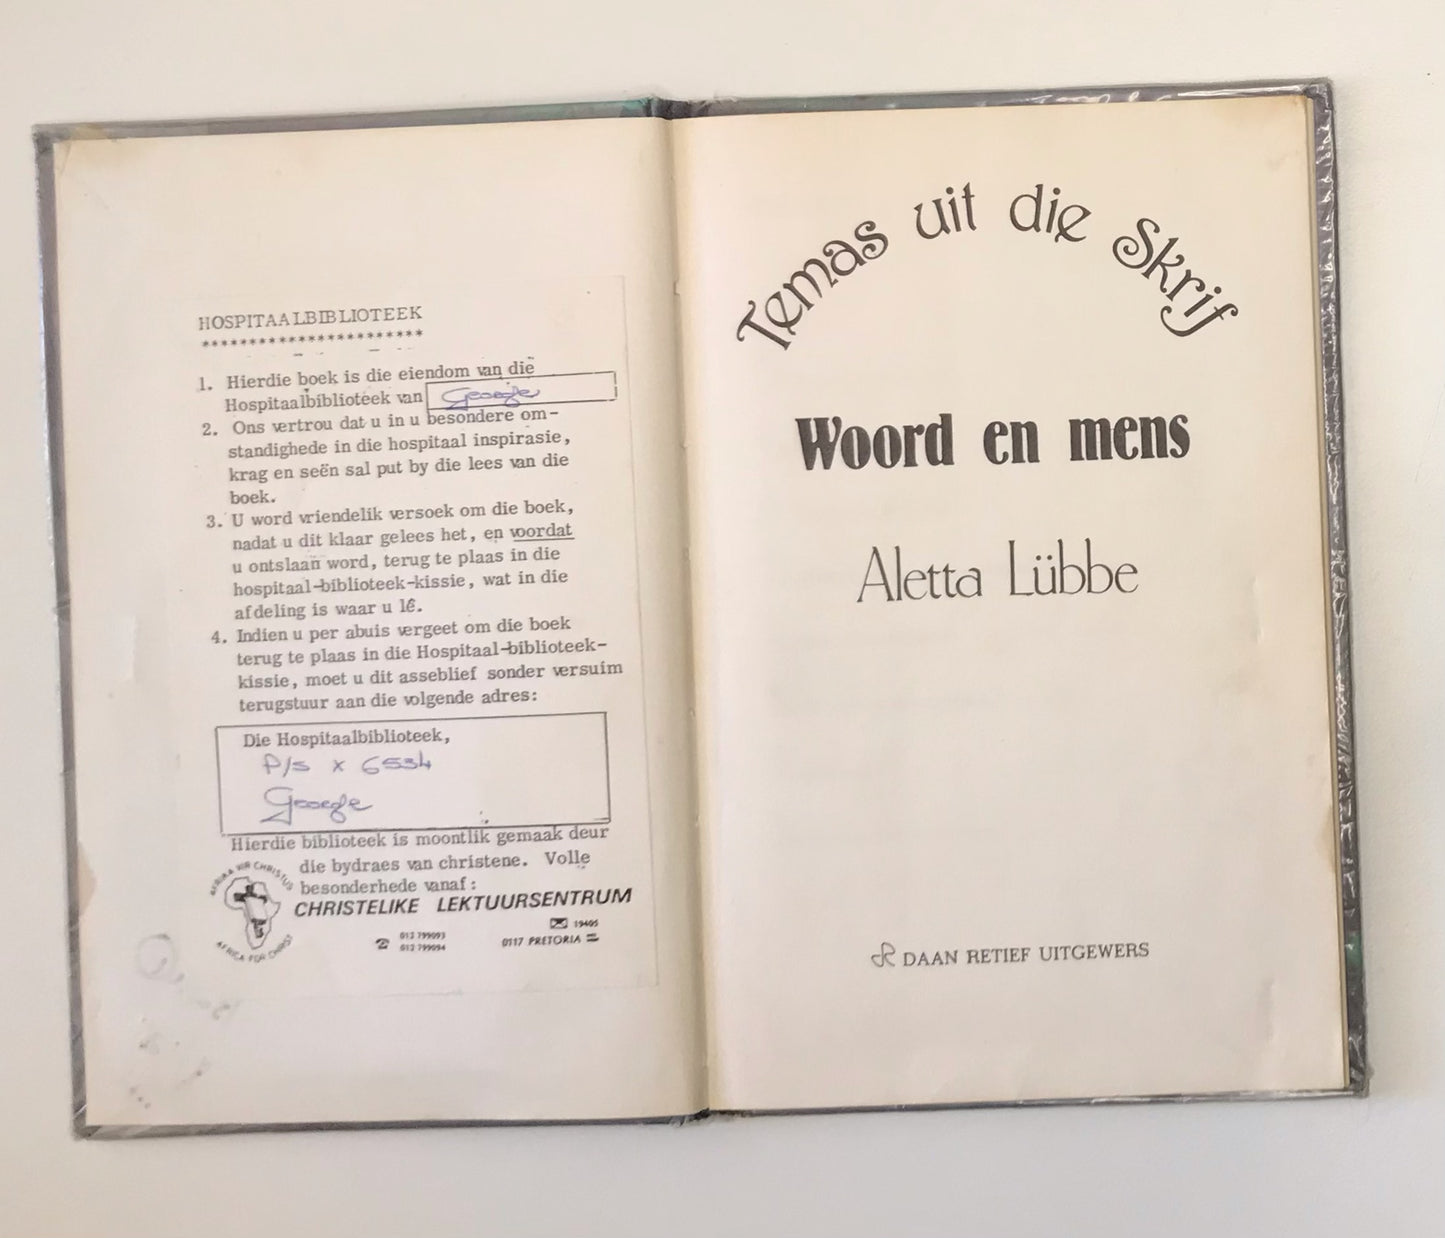 HOSPITAALBIBLIOTEEK
***********************
1. Hierdie boek is die eiendom van die
Hospitaalbiblioteek van George
2. Ons vertrou dat u in u besondere om-
standighede in die hospitaal inspirasie,
krag en seën sal put by die lees van die
boek.
3. U word vriendelik versoek om die boek,
nadat u dit klaar gelees het, en voordat
u ontslaan word, terug te plaas in die
hospitaal-biblioteek-kissie, wat in die
afdeling is waar u lê.
4. Indien u per abuis vergeet om die boek
terug te plaas in die Hospitaal-biblioteek-
kissie, moet u dit asseblief sonder versuim
terugstuur aan die volgende adres:
Die Hospitaalbiblioteek,
P/S x 6534
George
Hierdie biblioteek is moontlik gemaak deur
die bydraes van christene. Volle
besonderhede vanaf:
AFRIKA VIR CHRISTUS
AFRICA FOR CHRIST
CHRISTELIKE LEKTUURSENTRUM
☎ 012 799093
012 799094
✉ 19405
0117 PRETORIA
Temas uit die Skrif
Woord en mens
Aletta Lübbe
DAAN RETIEF UITGEWERS